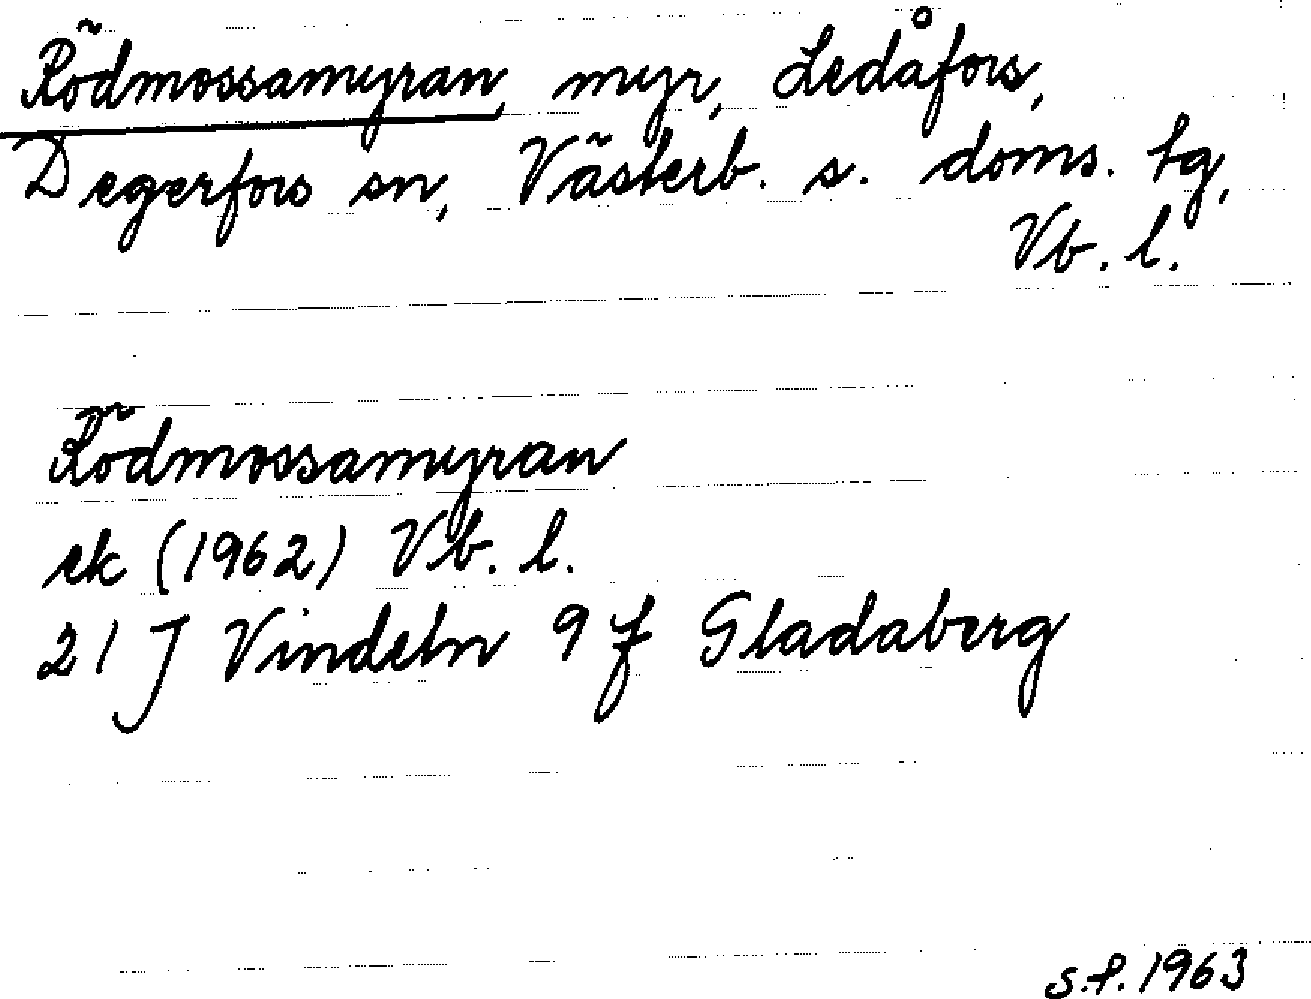 Rödmossamyran, myr, Ledåfors,
Degerfors sn, Västerb. s. doms. tg,
Vb. l.
Rödmossamyran
ek (1962) Vb. l.
21 J Vindeln 9 f Gladaberg
s.f. 1963